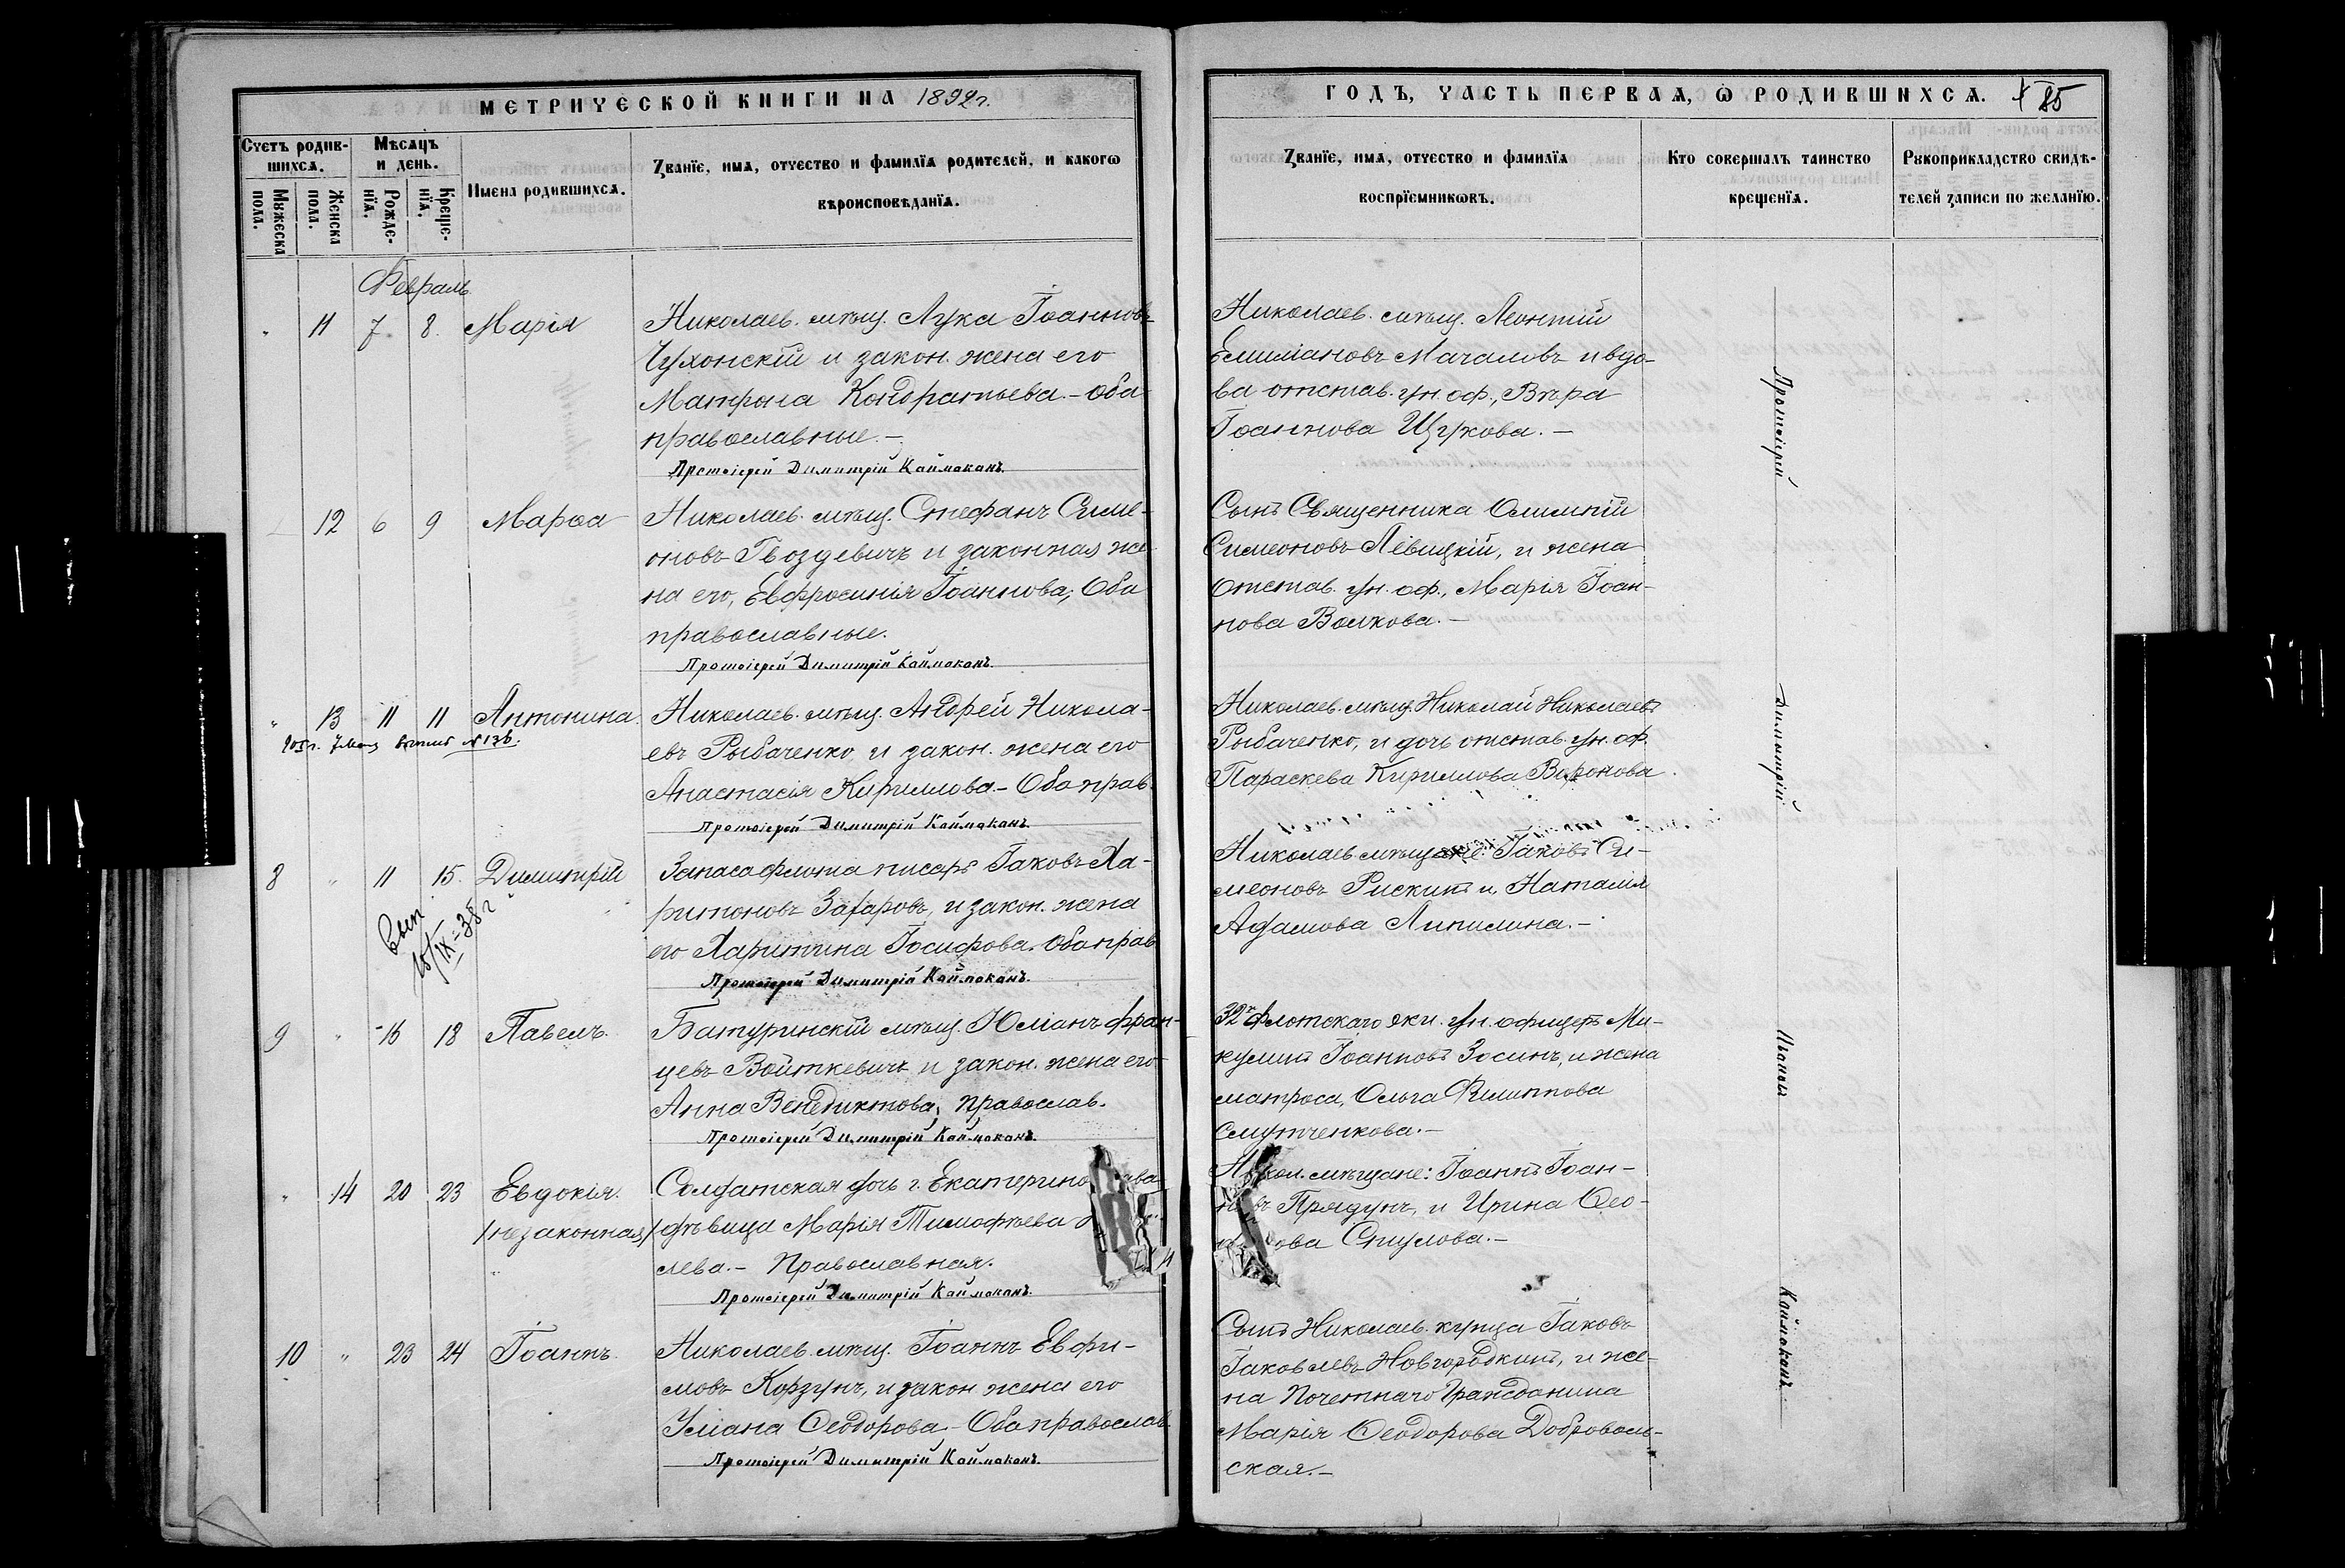 МЕТРИЧЕСКОЙ КНИГИ НА 1892 г.
Счетъ родив-
шихся.
Мужеска
пола.
Женска
пола.
Мѣсяцъ
и день.
Рожде-
нїя.
Креще-
нїя.
Имена родившихся.
Званїе, имя, отчество и фамилїя родителей, и какогѡ
вѣроисповѣданїя.
Февраль.
11 7 8 Марія
Николаев. мѣщ. Лука Іоанновъ
Чухонскій и закон. жена его
Матрона Кондратьева. - Оба
православные. -
Протоіерей Димитрій Каймаканъ.
12 6 9 Марѳа
Николаев. мѣщ. Стефанъ Симе-
оновъ Гвоздевичъ и законная же-
на его, Евфросинія Іоаннова; Оба
православные.
Протоіерей Димитрій Каймаканъ.
" 13 11 11 Антонина
Николаев. мѣщ. Андрей Никола-
евъ Рыбаченко, и закон. жена его
Анастасія Кириллова. - Оба прав.
Протоіерей Димитрій Каймаканъ.
8 " 11 15. Димитрій
Вып.
15/IX-38 г.
Запаса флота писарь Іаковъ Ха-
ритоновъ Захаровъ, и закон. жена
его Харитина Іосифова. Оба прав.
Протоіерей Димитрій Каймаканъ.
9 " 16 18 Павелъ.
Батуринскій мѣщ. Юліанъ Фран-
цевъ Войткевичъ и закон. жена его
Анна Венедиктова, Православ.
Протоіерей Димитрій Каймаканъ.
" 14 20 23 Евдокія.
/незаконная/
Солдатская дочь г. Екатерино
дѣвица Марія Тимофѣева
лева. - Православная.
Протоіерей Димитрій Каймаканъ.
10 " 23 24 Іоаннъ.
Николаев. мѣщ. Іоаннъ Евфи-
мовъ Корзунъ, и закон. жена его
Уліана Ѳеодорова. - Оба православ.
Протоіерей Димитрій Каймаканъ.
ГОДЪ, ЧАСТЬ ПЕРВАЯ, Ѡ РОДИВШИХСЯ. 85
Званїе, имя, отчество и фамилїя
воспрїемникѡвъ.
Кто совершалъ таинство
крещенїя.
Рукоприкладство свидѣ-
телей записи по желанїю.
Николаев. мѣщ. Леонтій
Емиліановъ Мачаловъ и вдо-
ва отстав. ун. оф., Вѣра
Іоаннова Щукова. -
Сынъ Священника Олимпій
Симеоновъ Левицкій, и жена
отстав. ун. оф., Марія Іоан-
нова Волкова. -
Николаев. мѣщ. Николай Николаевъ
Рыбаченко, и дочь отстав. ун. оф.
Параскева Кириллова Воронова.
Николаев. мѣщане: Іаковъ Си-
меоновъ Рискинъ и Наталія
Адамова Липилина. -
32го флотскаго эки. ун. офицеръ Ми-
кулинъ Іоанновъ Зосинъ, и жена
матроса, Ольга Филиппова
Семутченкова. -
Никол. мѣщане: Іоаннъ Іоан-
новъ Прядунъ, и Ирина Ѳео-
Спулова. -
Сынъ Николаев. купца Іаковъ
Іаковлевъ Новгородкинъ, и же-
на Почетнаго Гражданина
Марія Ѳеодорова Доброволь-
ская. -
Протоіерей
Димитрій
Ивановъ
Каймаканъ